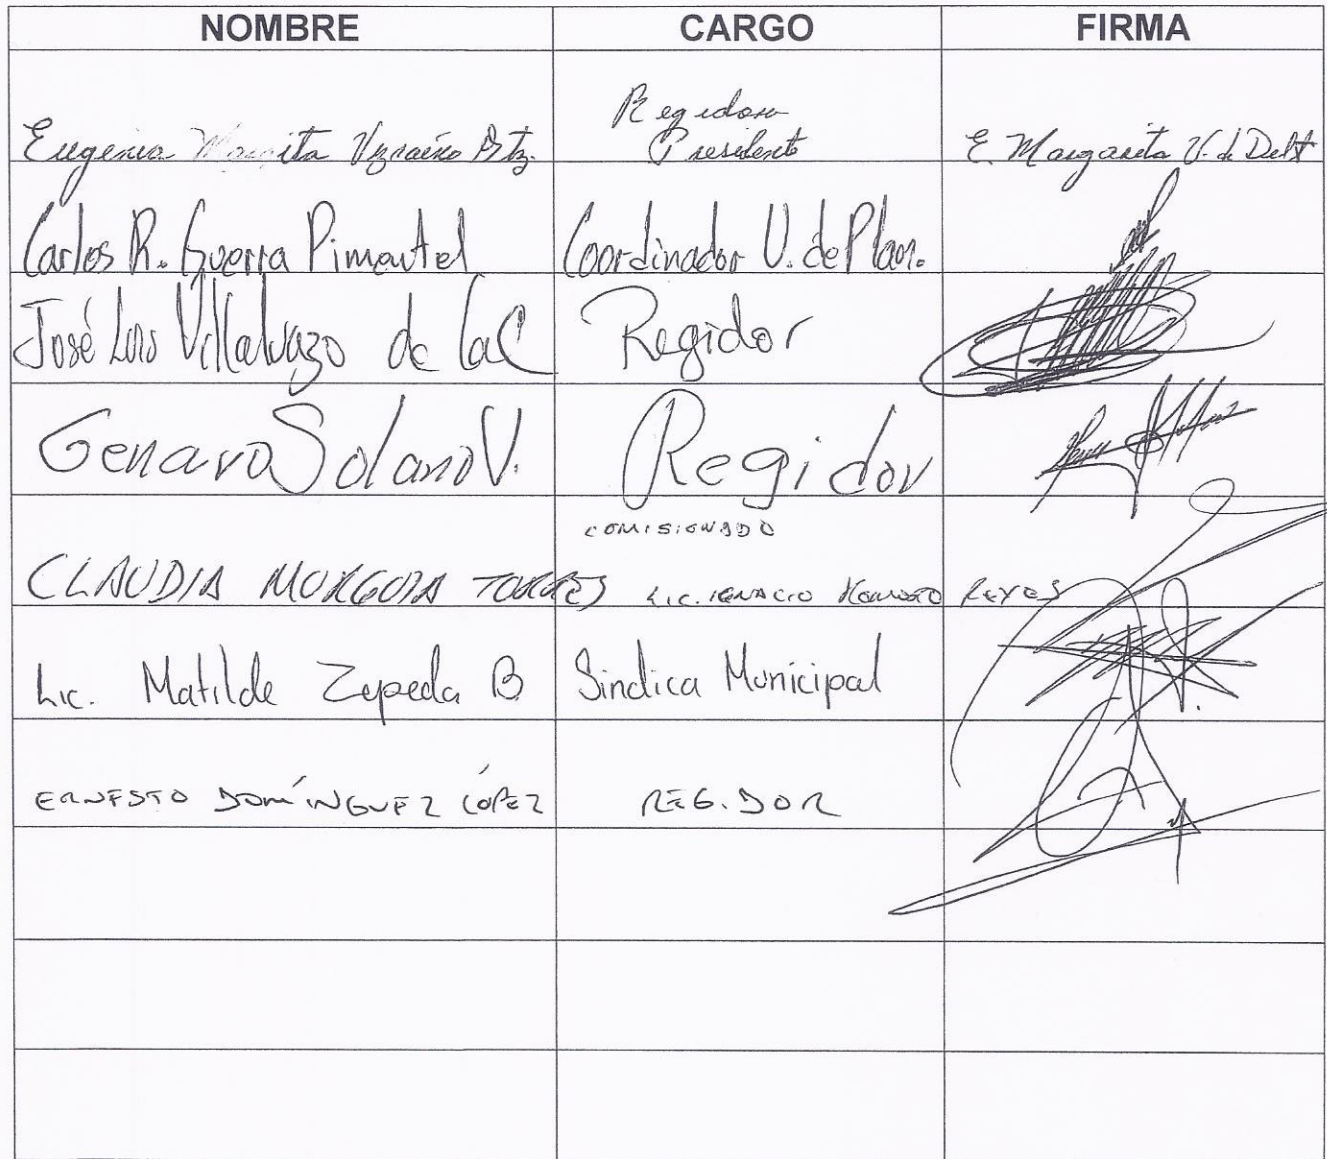 NOMBRE CARGO FIRMA
Regidora
Eugenia Margarita Vizcaíno Btz. Presidente E. Margarita V. de Delt
Carlos R. Guerra Pimentel Coordinador U. de Plan.
José Luis Villalvazo de la C Regidor
Genaro Solano V. Regidor
COMISIONADO
CLAUDIA MURGUIA TORRES LIC. IGNACIO REYES
Lic. Matilde Zepeda B Sindica Municipal
ERNESTO DOMÍNGUEZ LÓPEZ REGIDOR